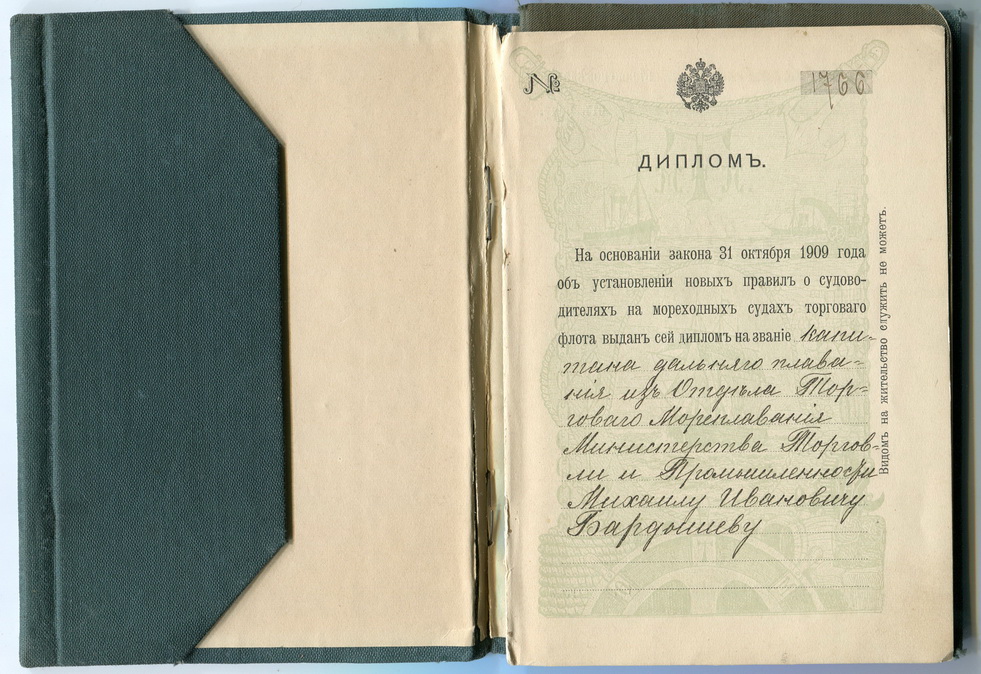 № 1766
ДИПЛОМЪ.
На основаніи закона 31 октября 1909 года
объ установленіи новыхъ правилъ о судово-
дителяхъ на мореходныхъ судахъ торговаго
флота выданъ сей дипломъ на званіе капи-
тана дальняго плава-
нія изъ Отдѣла Тор-
говаго Мореплаванія
Министерства Торгов-
ли и Промышленности
Михаилу Ивановичу
Бардошеву
Видомъ на жительство служить не можетъ.